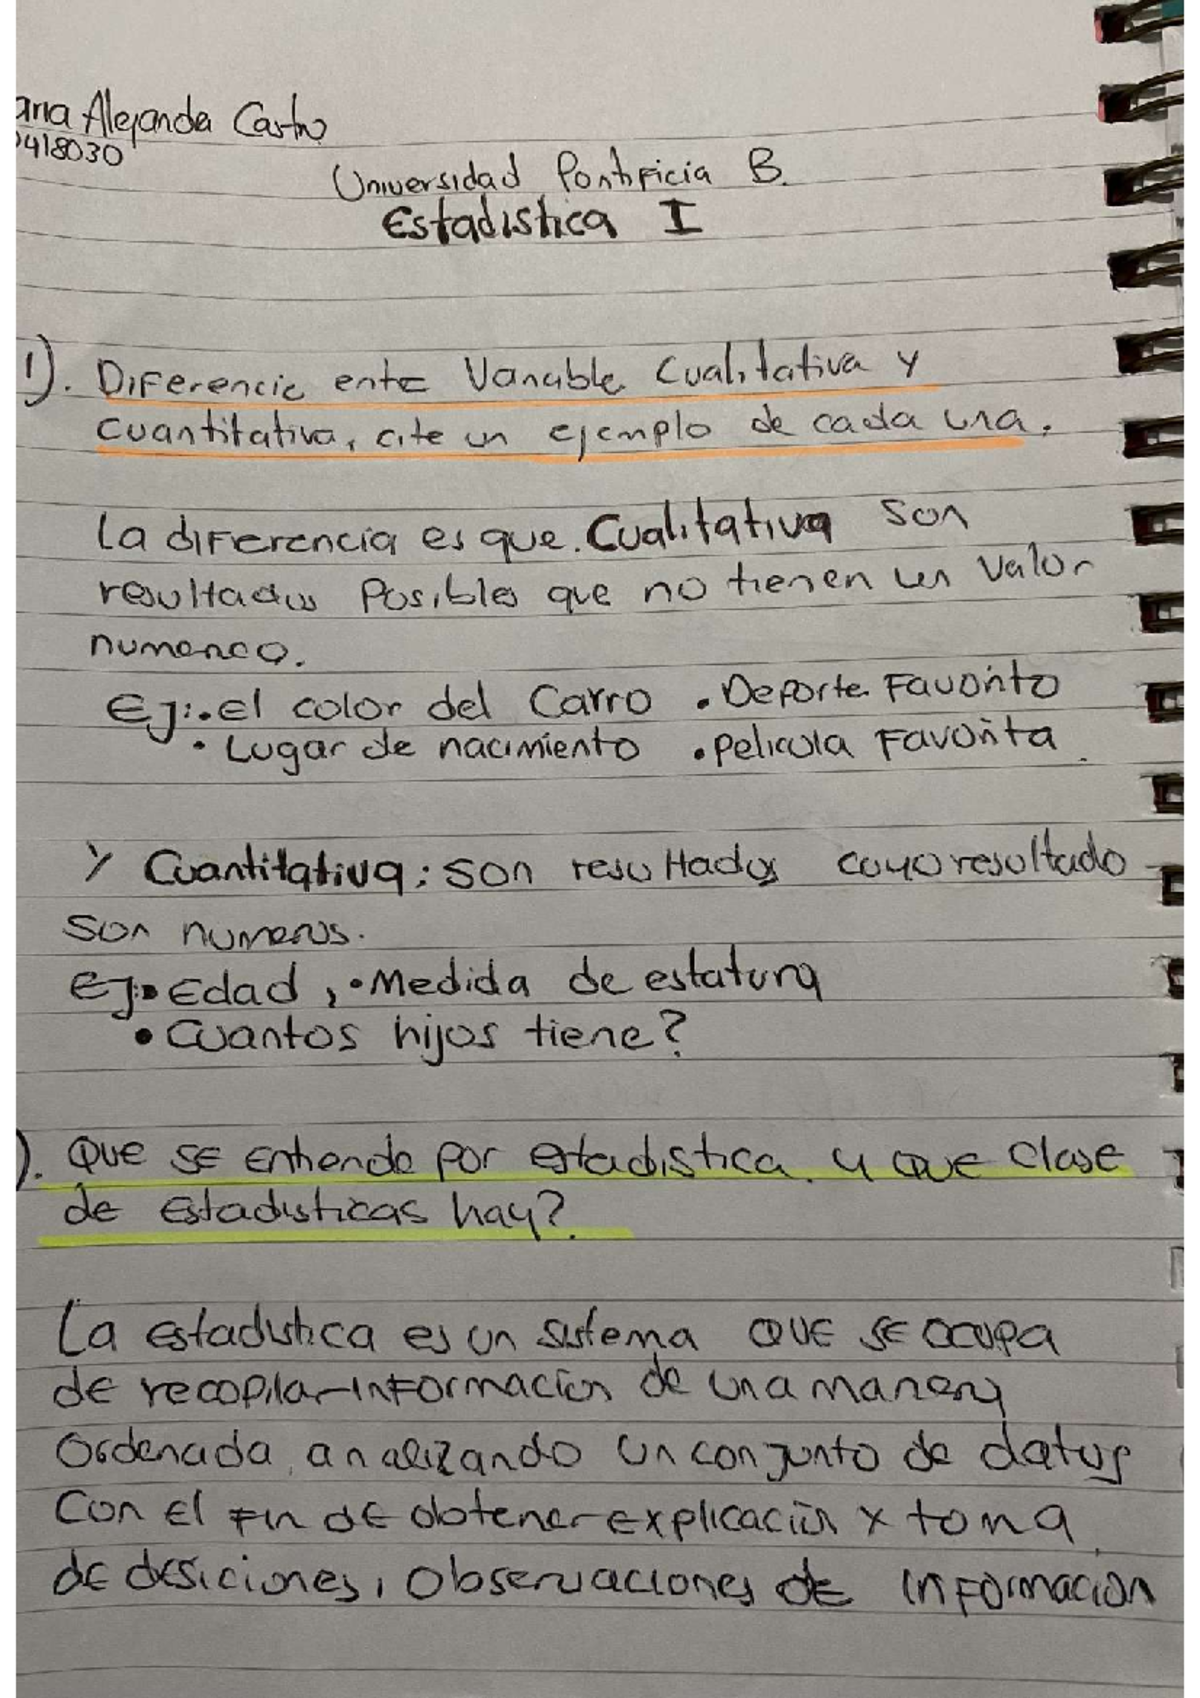 ana Alejanda Castro
0418030
Universidad Pontificia B.
Estadistica I
1). Diferencie ente Variable Cualitativa y
cuantitativa, cite un ejemplo de cada una.
La diferencia es que Cualitativa son
resultados Posibles que no tienen un valor
numerico.
Ej: • el color del Carro • Deporte Favorito
• Lugar de nacimiento • pelicula Favorita
Y Cuantitativa: son resultados cuyo resultado
son numeros.
Ej: • Edad, • Medida de estatura
• Cuantos hijos tiene?
). Que se entiende por estadistica y que clase
de estadisticas hay?
La estadistica es un sistema que se ocupa
de recopilar informacion de una manera
Ordenada, analizando un conjunto de datos
Con el fin de obtener explicación x toma
de desiciones, Observaciones de informacion